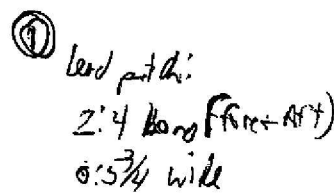 ①
lead patch:
2:4 long (fore + Aft)
0:5 3/4 wide